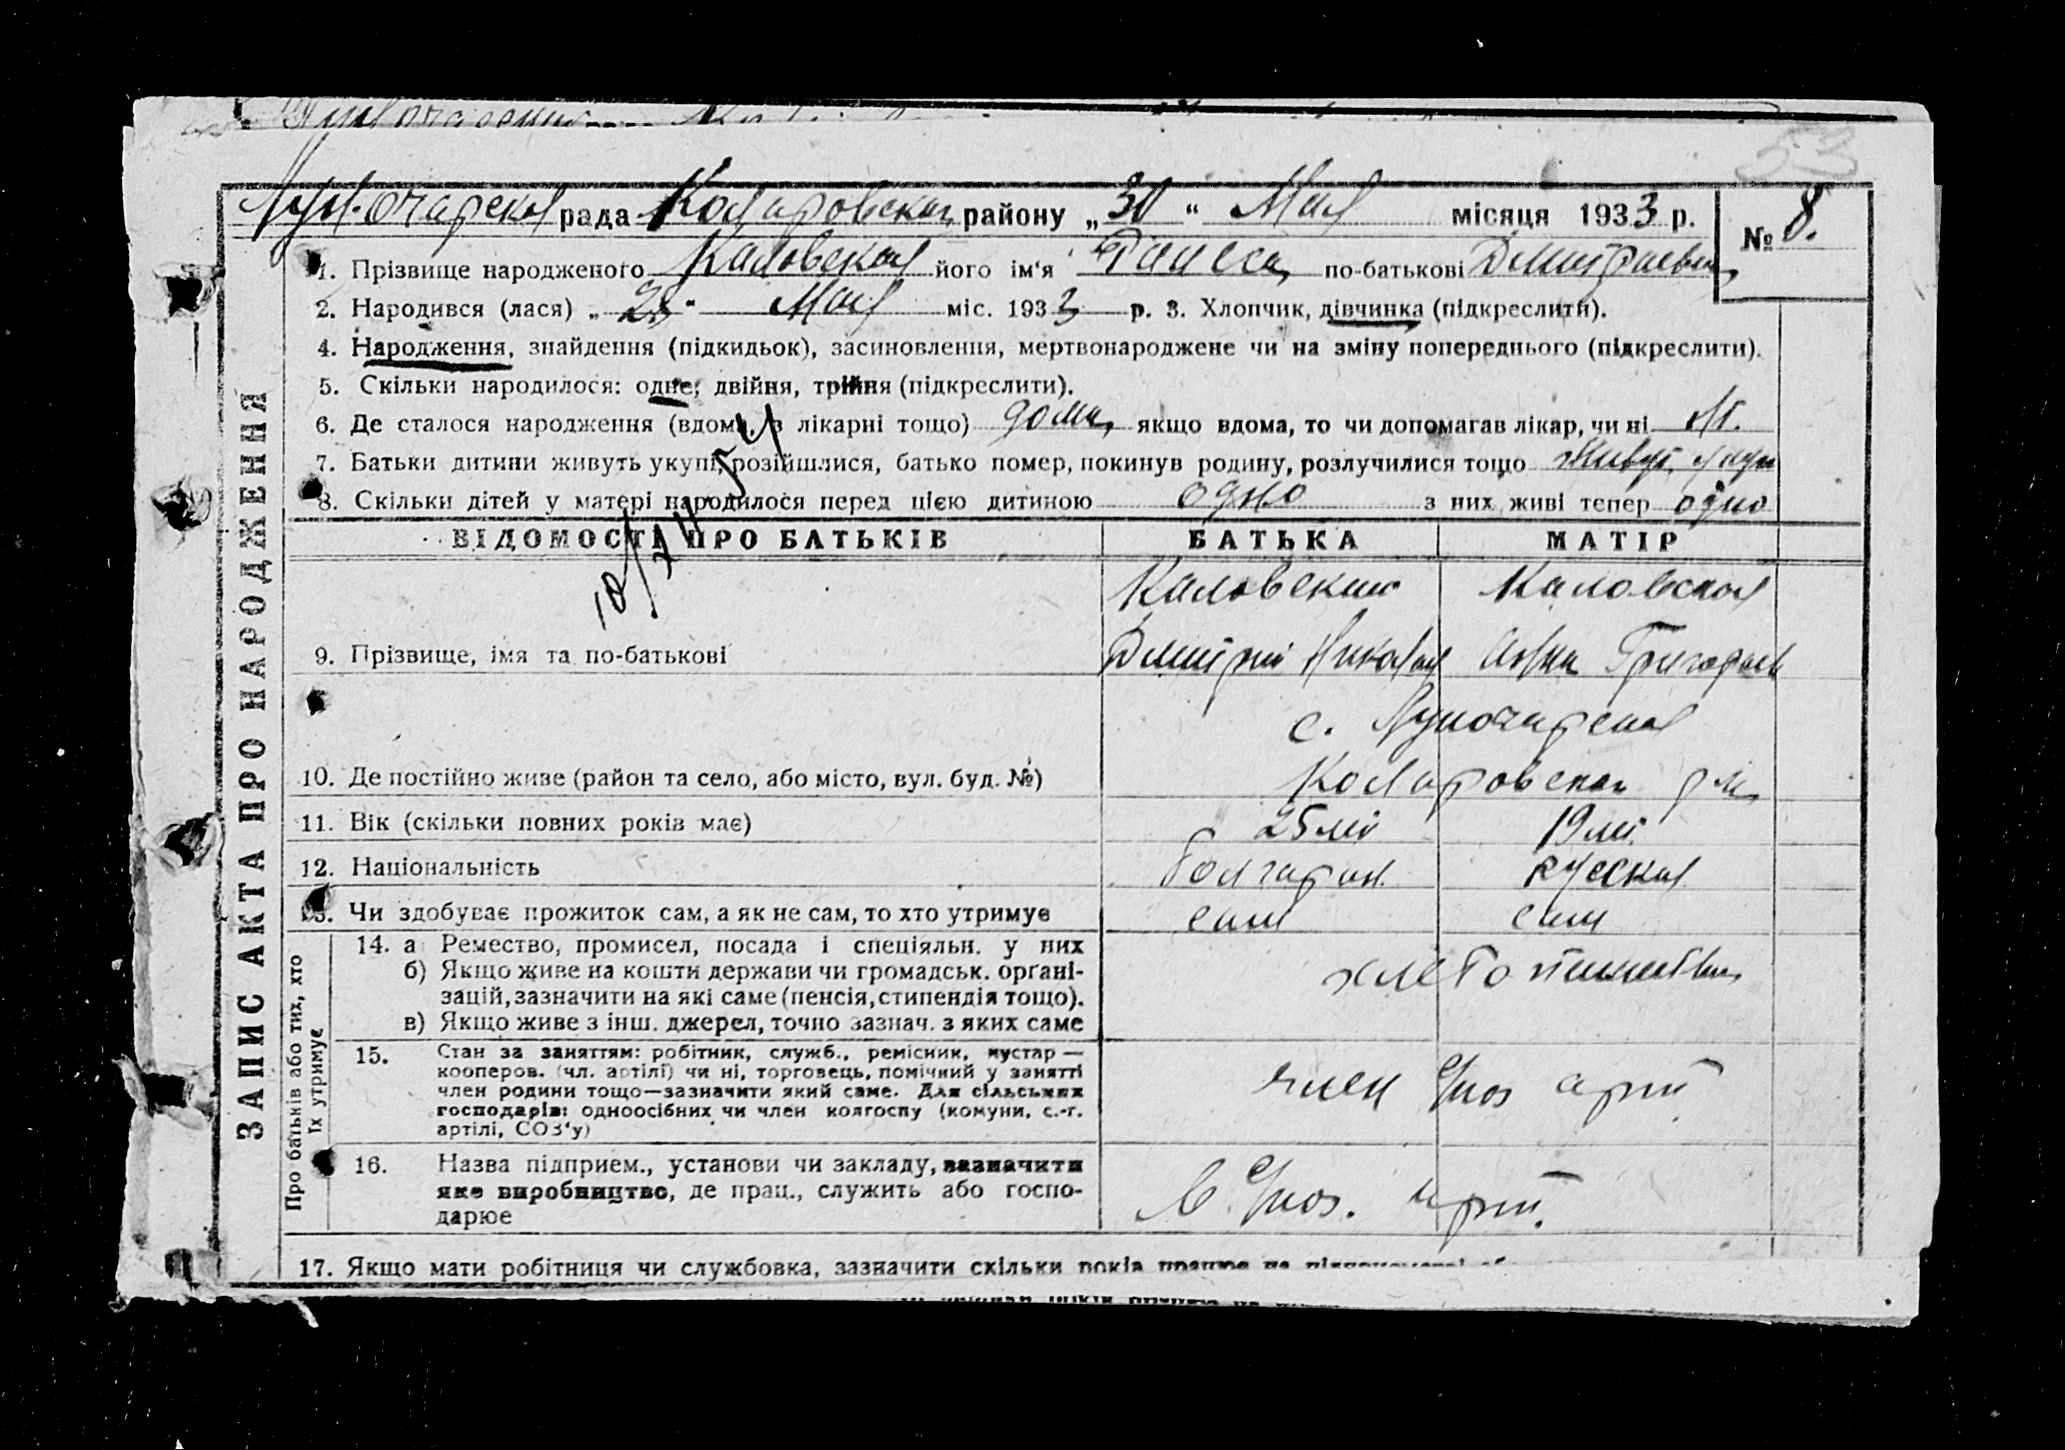 53
Луначарская рада Коларовскаи району „30“ Мая місяця 1933 р.
№ 8.
1. Прізвище народженого Каловская його ім'я Раиса по-батькові Дмитриевна
2. Народився (лася) „28“ Мая міс. 1933 р. 3. Хлопчик, дівчинка (підкреслити).
4. Народження, знайдення (підкидьок), засиновлення, мертвонароджене чи на зміну попереднього (підкреслити).
5. Скільки народилося: одне, двійня, трійня (підкреслити).
6. Де сталося народження (вдома, в лікарні тощо) дома якщо вдома, то чи допомагав лікар, чи ні
7. Батьки дитини живуть укупі, розійшлися, батько помер, покинув родину, розлучилися тощо живут
8. Скільки дітей у матері народилося перед цією дитиною одно з них живі тепер одно
ВІДОМОСТІ ПРО БАТЬКІВ БАТЬКА МАТІР
Каловский Каловская
9. Прізвище, імя та по-батькові Дмитрий Николай Анна Григорьев
с. Луначарская
10. Де постійно живе (район та село, або місто, вул. буд. №) Коларовскаи
11. Вік (скільки повних років має) 25 лет 19 лет
12. Національність болгарин русская
13. Чи здобуває прожиток сам, а як не сам, то хто утримує сам сам
14. а Ремество, промисел, посада і спеціяльн. у них
б) Якщо живе на кошти держави чи громадськ. органі-
зацій, зазначити на які саме (пенсія, стипендія тощо).
в) Якщо живе з інш. джерел, точно зазнач. з яких саме
хлебопашество
15. Стан за заняттям: робітник, служб., ремісник, кустар —
кооперов. (чл. артілі) чи ні, торговець, помічний у занятті
член родини тощо—зазначити який саме. Для сільських
господарів: одноосібних чи член колгоспу (комуни, с.-г.
артілі, СОЗ'у)
член арт
16. Назва підприєм., установи чи закладу, зазначити
яке виробництво, де прац., служить або госпо-
дарює
в арт.
17. Якщо мати робітниця чи службовка, зазначити скільки років працює на
ЗАПИС АКТА ПРО НАРОДЖЕННЯ
Про батьків або тих, хто
їх утримує